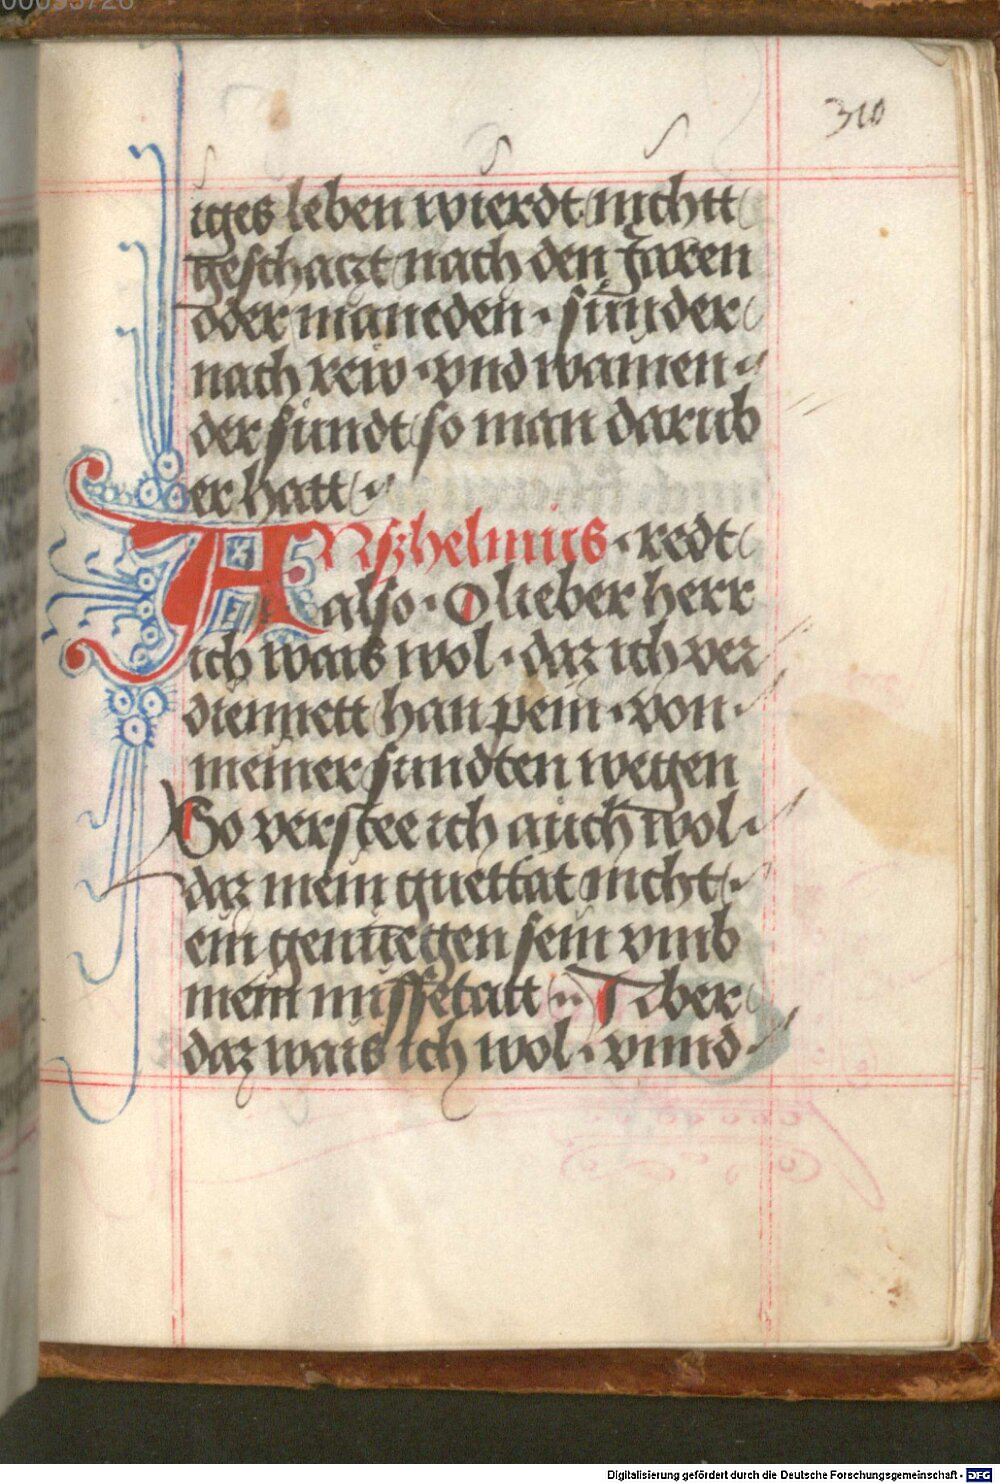 00095726
310
iges leben wierdt nichtt
geschaczt nach den Jaren
oder maneden · sunder
nach rew · vnd wainen ·
der sundt so man darub
er hatt ·
ANszhelmus · redt
also · O lieber herr
ich wais wol · daz ich ver
diennett han pein · von ·
meiner sundten wegen
So verstee ich auch wol ·
daz mein guettat nicht ·
ein genuegen sein vmb
mein missetatt · Aber
daz wais ich wol · vnnd ·
Digitalisierung gefördert durch die Deutsche Forschungsgemeinschaft - DFG